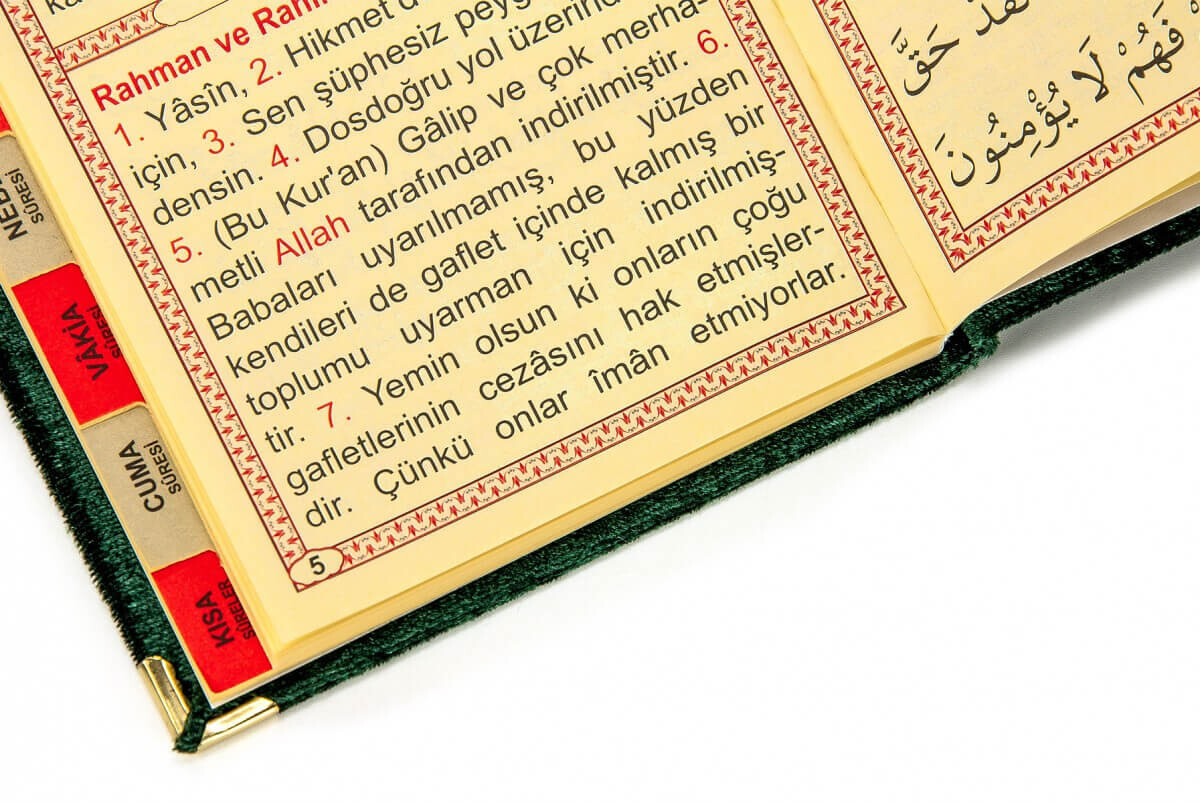 Rahman ve
1. Yâsîn, 2. Hikmet
için, 3. Sen şüphesiz
densin. 4. Dosdoğru yol
(Bu Kur'an) Gâlip ve çok merha-
5.
metli Allah tarafından indirilmiştir. 6.
Babaları uyarılmamış, bu yüzden
kendileri de gaflet içinde kalmış bir
toplumu uyarman için indirilmiş-
tir. 7. Yemin olsun ki onların çoğu
gafletlerinin cezâsını hak etmişler-
dir. Çünkü onlar îmân etmiyorlar.
5
SÛRESİ
VÂKIA
SÛRESİ
CUMA
SÛRESİ
KISA
SÛRELER
حَقَّ
فَهُمْ لَا يُؤْمِنُونَ